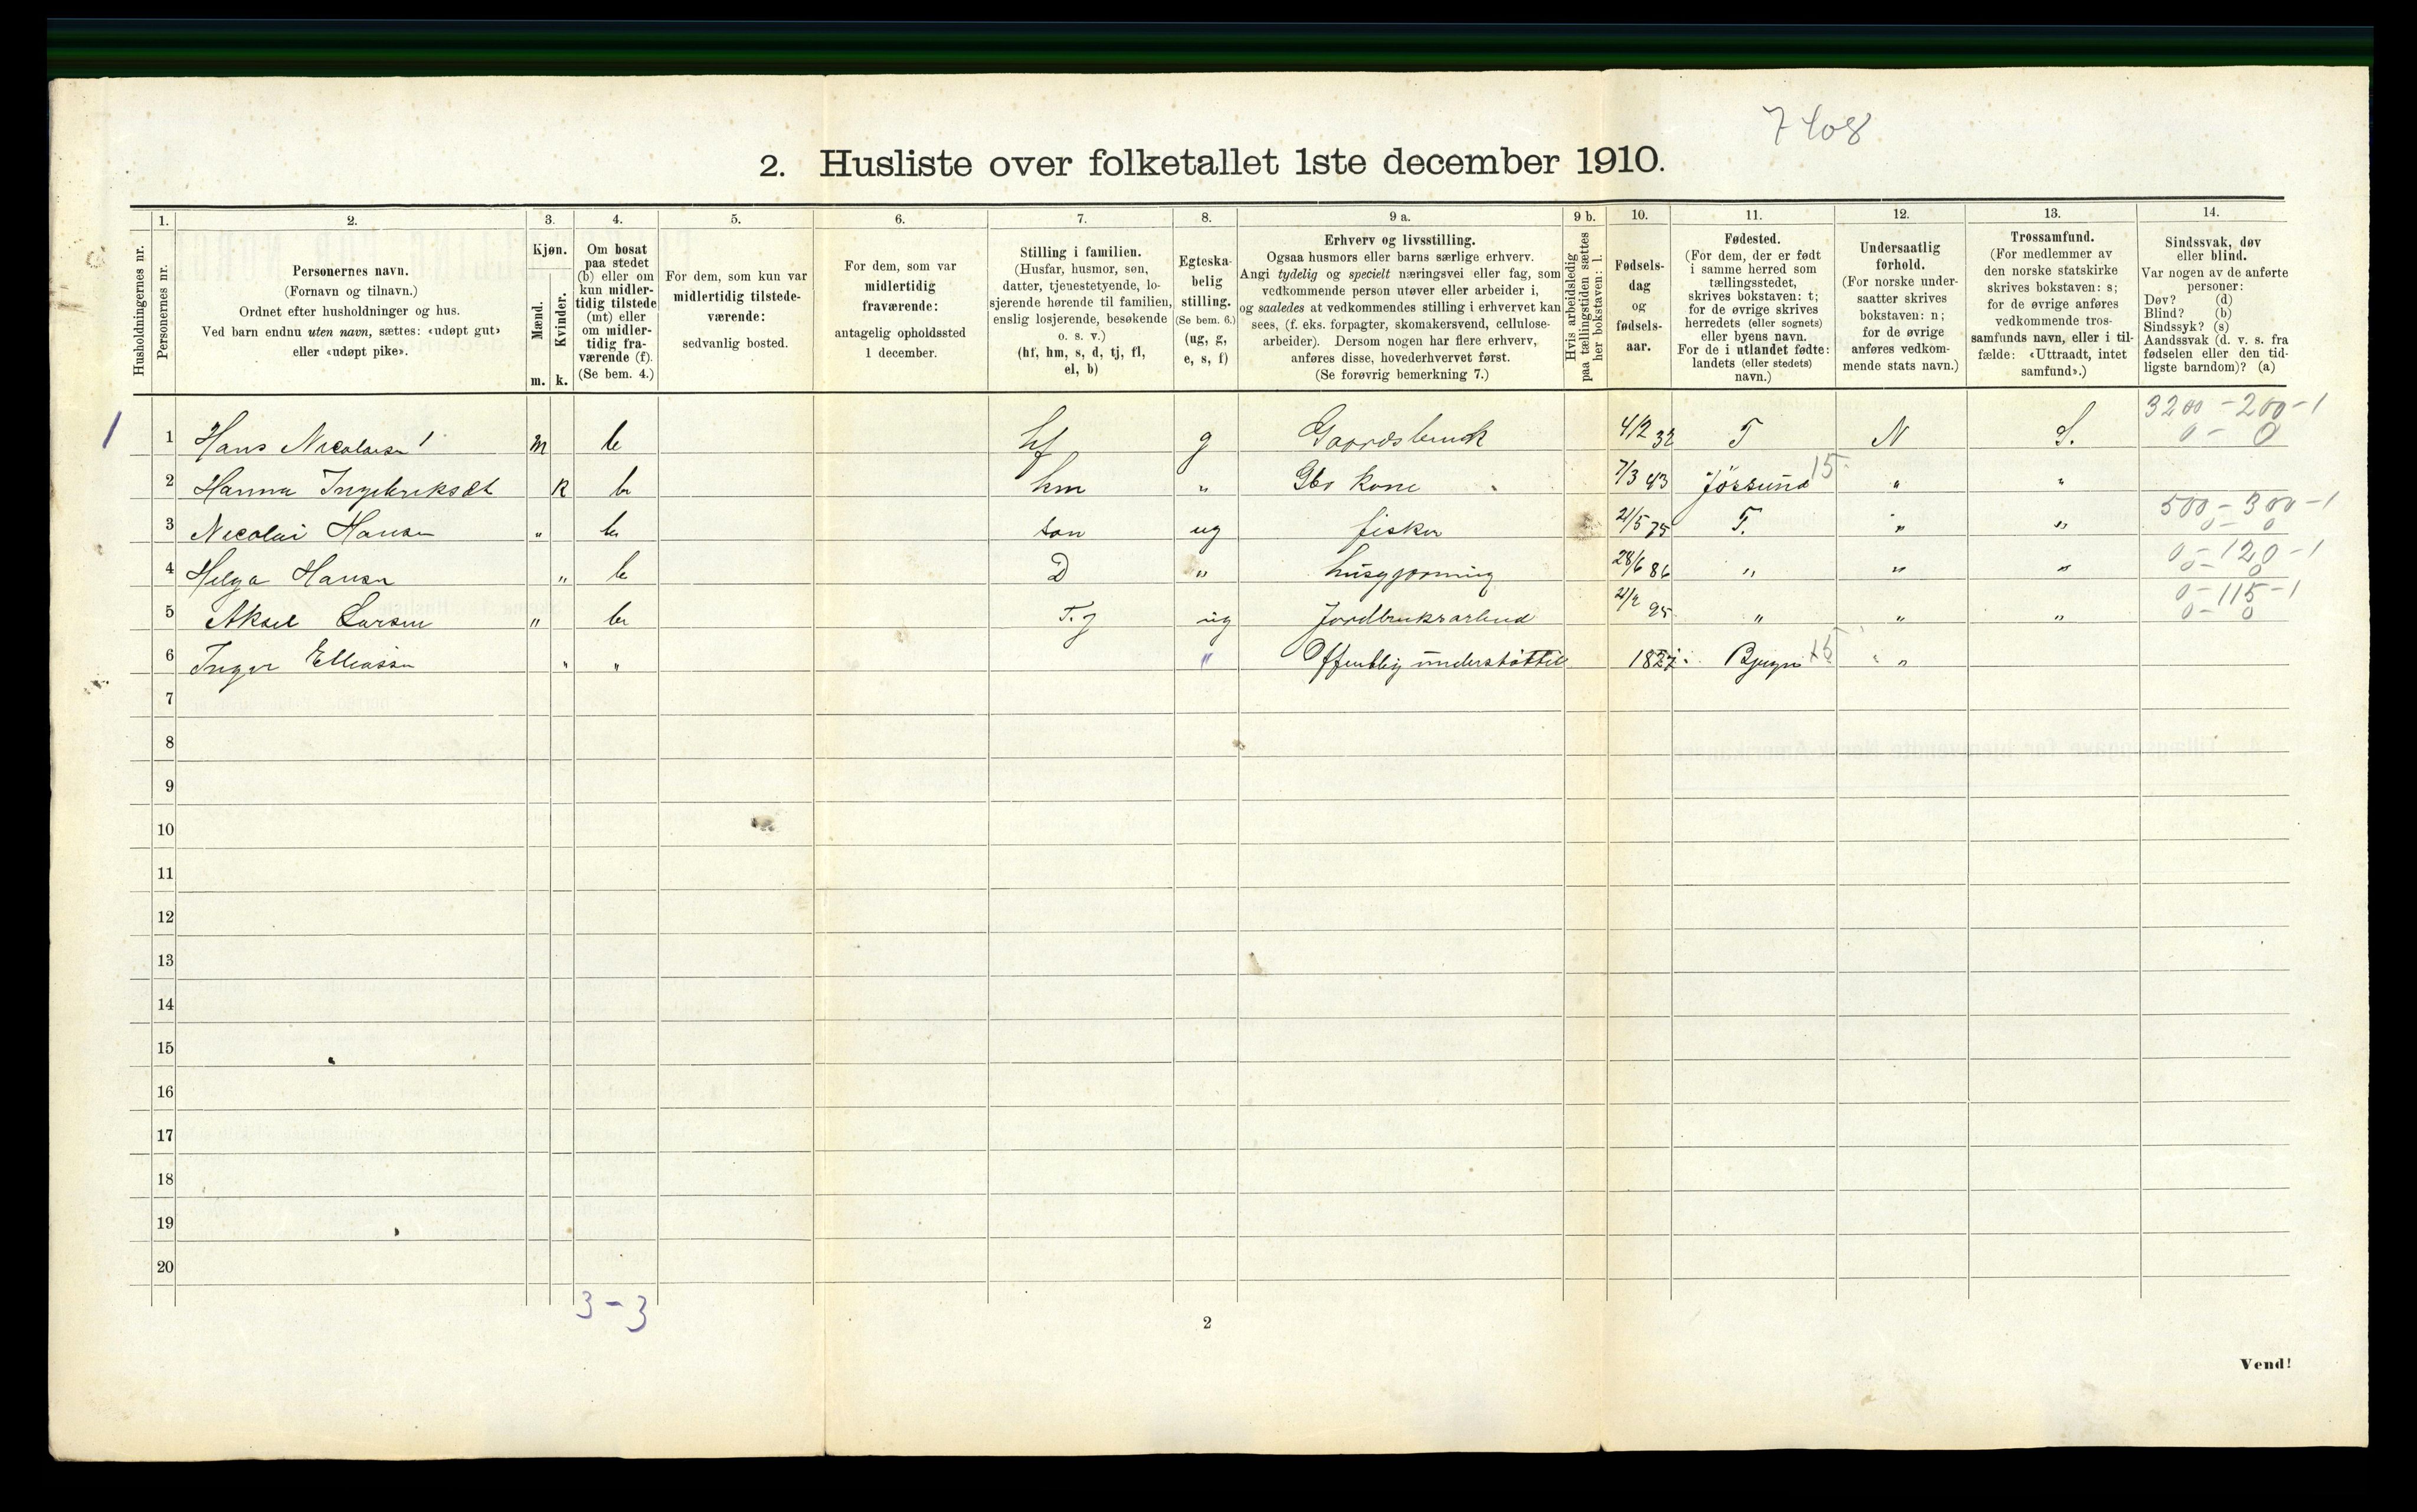 7408
2. Husliste over folketallet 1ste december 1910.
1. 2. 3. 4. 5. 6. 7. 8. 9 a. 9 b. 10. 11. 12. 13. 14.
Husholdningernes nr.
Personernes nr.
Personernes navn.
(Fornavn og tilnavn.)
Ordnet efter husholdninger og hus.
Ved barn endnu uten navn, sættes: «udøpt gut»
eller «udøpt pike».
Kjøn.
Mænd.
Kvinder.
m. k.
Om bosat
paa stedet
(b) eller om
kun midler-
tidig tilstede
(mt) eller
om midler-
tidig fra-
værende (f).
(Se bem. 4.)
For dem, som kun var
midlertidig tilstede-
værende:
sedvanlig bosted.
For dem, som var
midlertidig
fraværende:
antagelig opholdssted
1 december.
Stilling i familien.
(Husfar, husmor, søn,
datter, tjenestetyende, lo-
sjerende hørende til familien,
enslig losjerende, besøkende
o. s. v.)
(hf, hm, s, d, tj, fl,
el, b)
Egteska-
belig
stilling.
(Se bem. 6.)
(ug, g,
e, s, f)
Erhverv og livsstilling.
Ogsaa husmors eller barns særlige erhverv.
Angi tydelig og specielt næringsvei eller fag, som
vedkommende person utøver eller arbeider i,
og saaledes at vedkommendes stilling i erhvervet kan
sees, (f. eks. forpagter, skomakersvend, cellulose-
arbeider). Dersom nogen har flere erhverv,
anføres disse, hovederhvervet først.
(Se forøvrig bemerkning 7.)
Hvis arbeidsledig
paa tællingstiden sættes
her bokstaven: l.
Fødsels-
dag
og
fødsels-
aar.
Fødested.
(For dem, der er født
i samme herred som
tællingsstedet,
skrives bokstaven: t;
for de øvrige skrives
herredets (eller sognets)
eller byens navn.
For de i utlandet fødte:
landets (eller stedets)
navn.)
Undersaatlig
forhold.
(For norske under-
saatter skrives
bokstaven: n;
for de øvrige
anføres vedkom-
mende stats navn.)
Trossamfund.
(For medlemmer av
den norske statskirke
skrives bokstaven: s;
for de øvrige anføres
vedkommende tros-
samfunds navn, eller i til-
fælde: «Uttraadt, intet
samfund».)
Sindssvak, døv
eller blind.
Var nogen av de anførte
personer:
Døv? (d)
Blind? (b)
Sindssyk? (s)
Aandssvak (d. v. s. fra
fødselen eller den tid-
ligste barndom)? (a)
3200-200-1
1 1 Hans Nicolaisen 1 m b hf g Gaardsbruk 4/2 32 T N S. 0-0
2 Hanna Ingebriksdt k b hm " Gbr kone 7/3 43 Jössund 15 " "
500-300-1
3 Nicolai Hansen " b søn ug fisker 21/5 75 T. " " 0-0
0-120-1
4 Helga Hansen " b D " husgjerning 28/6 86 " " " 0-0
0-115-1
5 Aksel Larsen " b T.j ug Jordbruksarbeid 21/2 95 " " " 0-0
6 Inger Elliassen " " " Offentlig understöttet 1827 Bjugn 15 "
7
8
9
10
11
12
13
14
15
16
17
18
19
20
3-3
2
Vend!